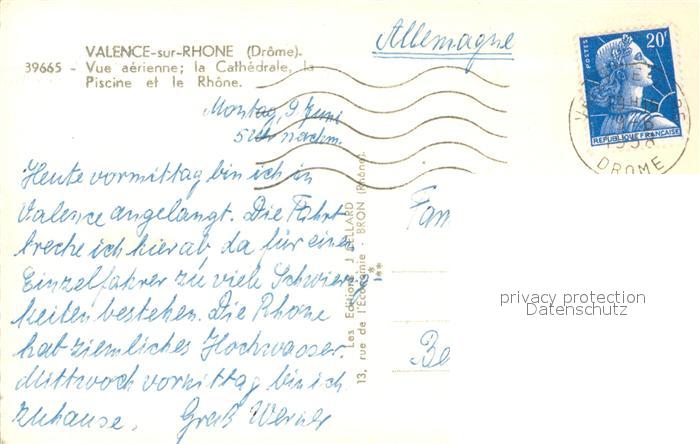 VALENCE-sur-RHONE (Drôme).
39665 - Vue aérienne; la Cathédrale, la
Piscine et le Rhône.
Allemagne
POSTES
20F
REPUBLIQUE FRANÇAISE
1958
DROME
Montag, 9 Juni
5 Uhr nachm.
Heute vormittag bin ich in
Valence angelangt. Die Fahrt
breche ich hier ab, da für einen
Einzelfahrer zu viele Schwierig
keiten bestehen. Die Rhone
hat ziemliches Hochwasser.
Mittwoch vormittag bin ich
zuhause. Gruß Werner
Les Editions J. CELLARD
13, rue de l'Economie - BRON (Rhône)
Fam
Be
privacy protection
Datenschutz